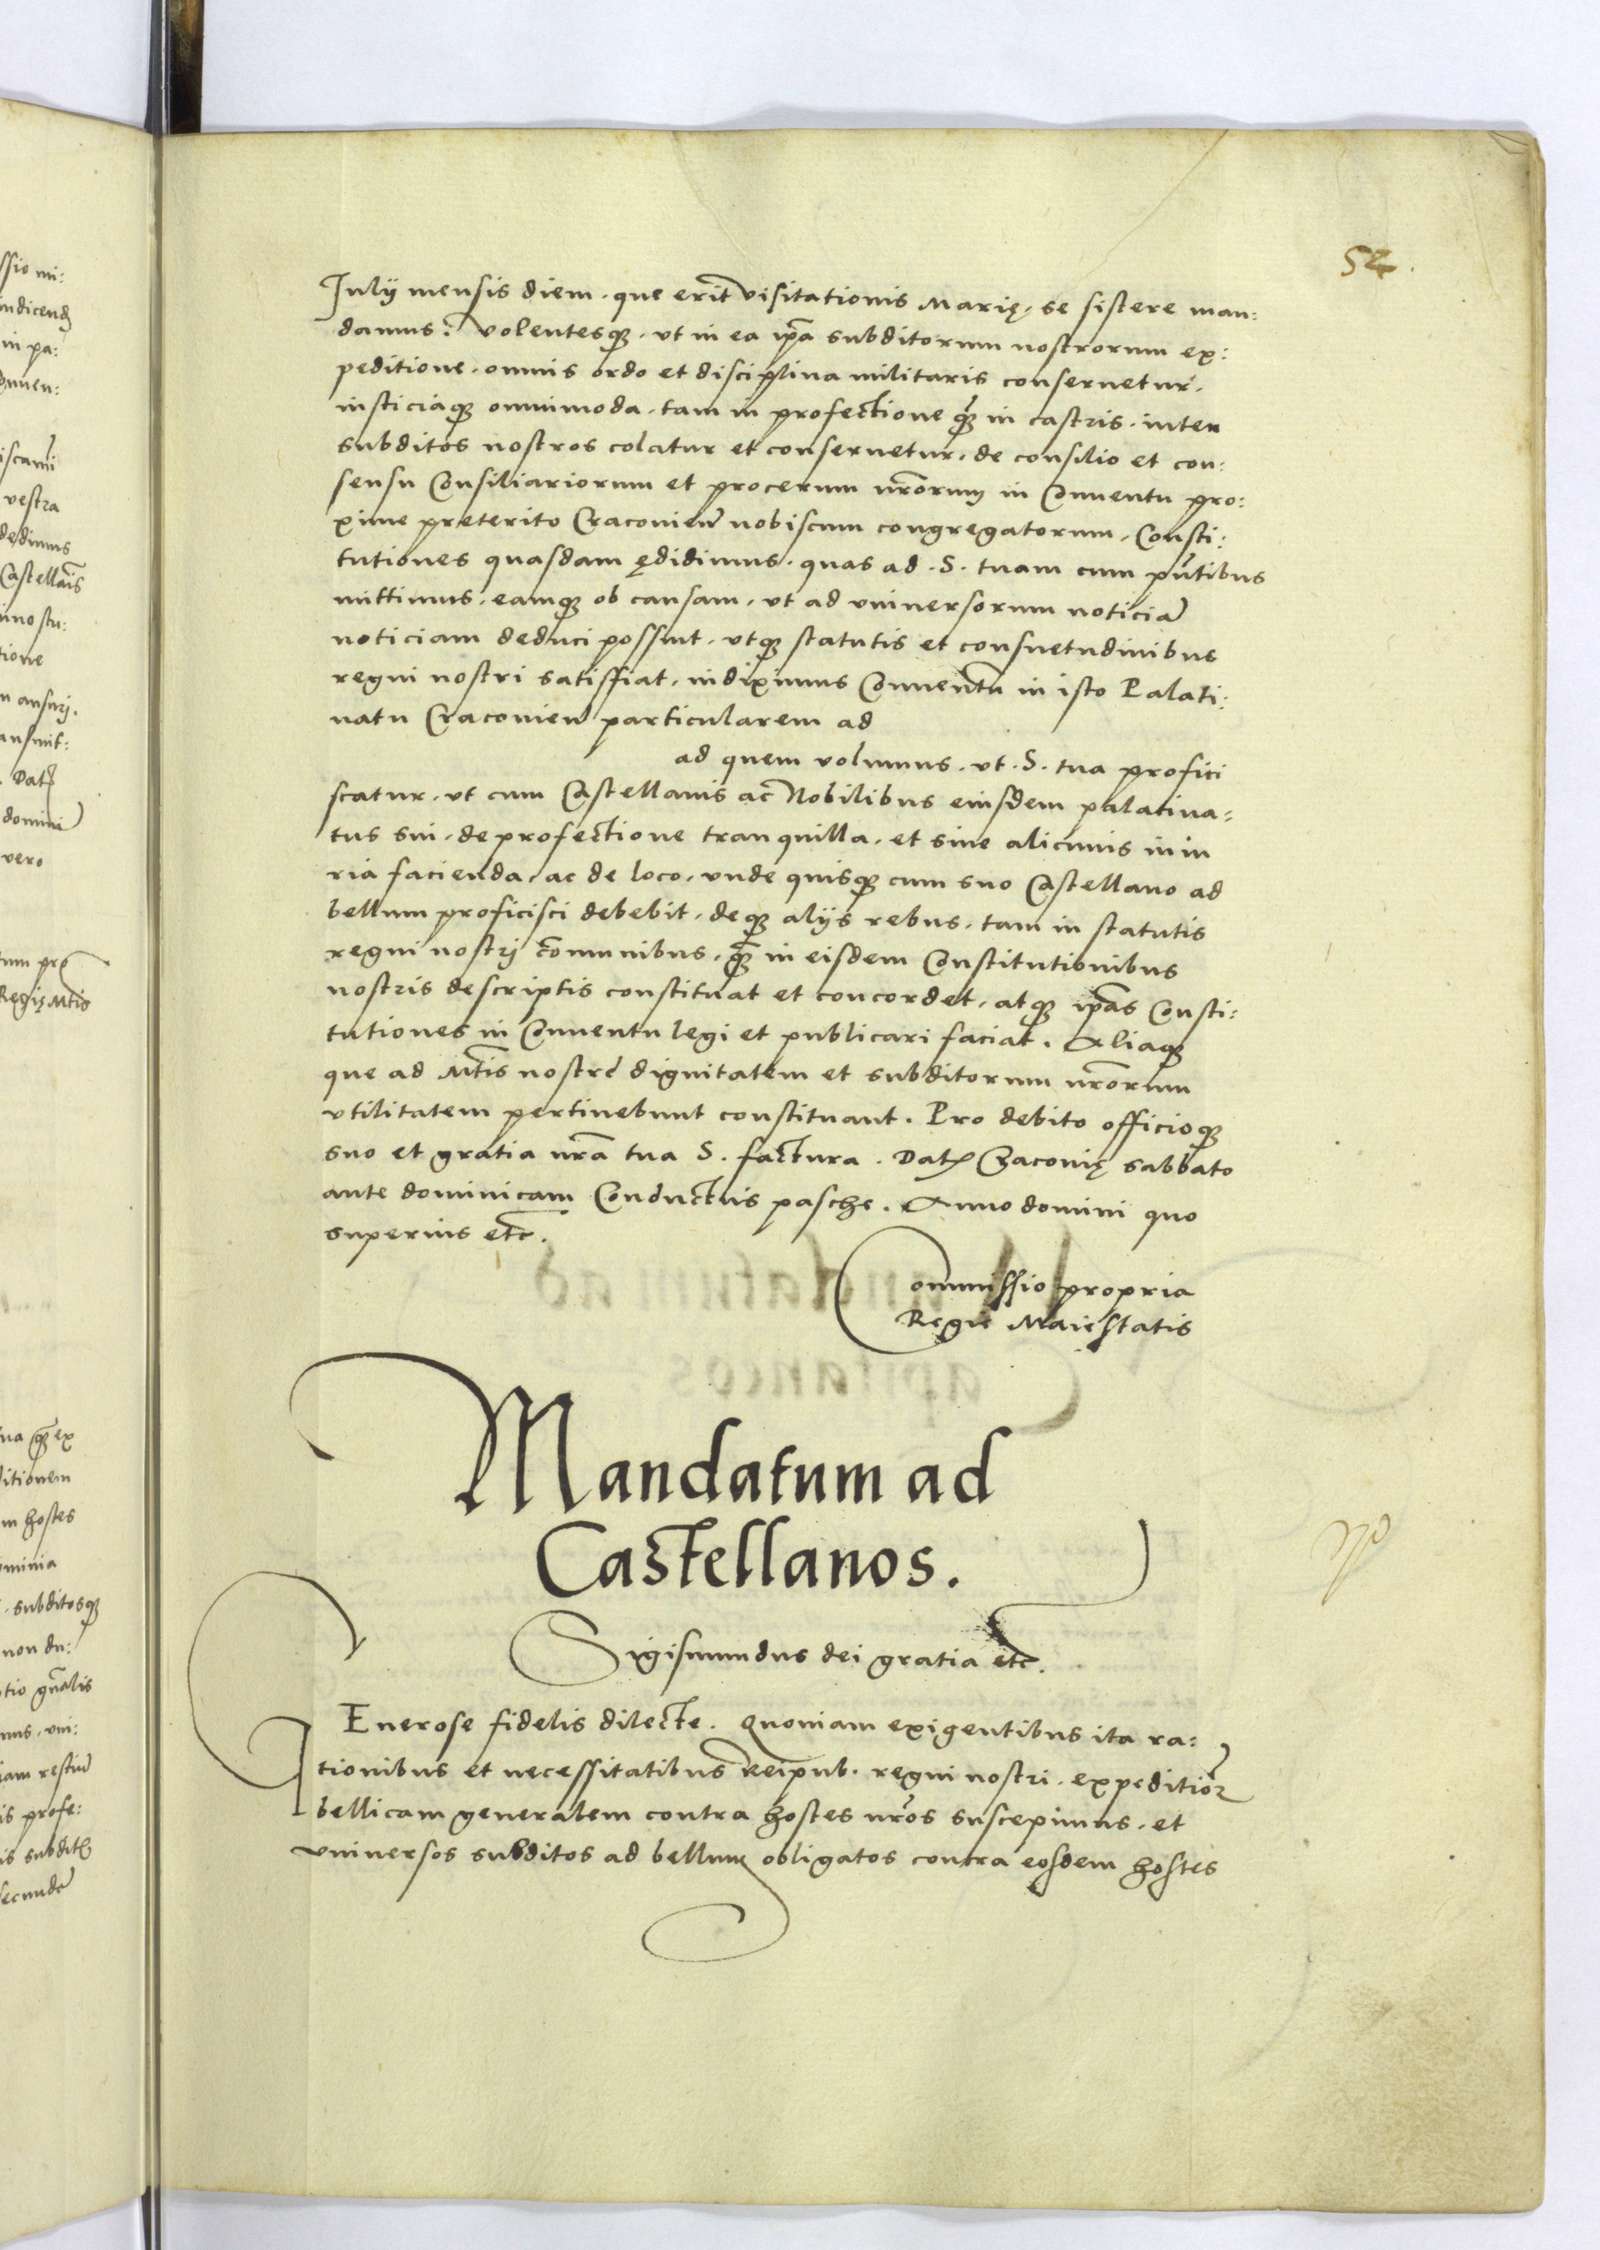 52.
Julij mensis diem. que erit visitationis Marię. se sistere man:
damus: Volentesq3. vt in ea ip̄a subditorum nostrorum ex:
peditione. omnis ordo et disciplina militaris conseruetur.
iusticiaq3 omnimoda. tam in profectione q̄3 in castris. inter
subditos nostros colatur et conseruetur. de consilio et con:
sensu Consiliariorum et procerum nr̄orum in Conuentu pro:
xime preterito Cracovien̄ nobiscum congregatorum. Consti:
tutiones quasdam ędidimus. quas ad. S. tuam cum pn̄tibus
mittimus. eamq3 ob causam. vt ad vniuersorum noticiā
noticiam deduci possint. vtq3 statutis et consuetudinibus
regni nostri satisfiat. indiximus Conuentū in isto Palati:
natu Cracovien̄ particularem ad
ad quem volumus. vt. S. tua profici
scatur. vt cum Castellanis ac Nobilibus eiusdem palatina:
tus sui. de profectione tranquilla. et sine alicuius iniu
ria facienda. ac de loco. vnde quisq3 cum suo Castellano ad
bellum proficisci debebit. deq3 alijs rebus. tam in statutis
regni nostrj com̄unibus. q̄3 in eisdem Constitutionibus
nostris descriptis constituat et concordet. atq3 ip̄as Consti:
tutiones in Conuentu legi et publicari faciat. Aliaq3
que ad Mt̄is nostre dignitatem et subditorum nr̄orum
vtilitatem pertinebunt constituant. Pro debito officioq3
suo et gratia nr̄a tua S. factura. Dat̄ Cracovię sabbato
ante dominicam Conductus pasche. Anno domini quo
superius etc̄.
Commissio propria
Regie Maiestatis
Mandatum ad
Castellanos.
Sigismundus dei gratia etc̄.
GEnerose fidelis dilecte. Quoniam exigentibus ita ra:
tionibus et necessitatibus Reipub. regni nostri. expeditiōẽ
bellicam generalem contra hostes nr̄os suscepimus. et
vniuersos subditos ad bellum obligatos contra eosdem hostes